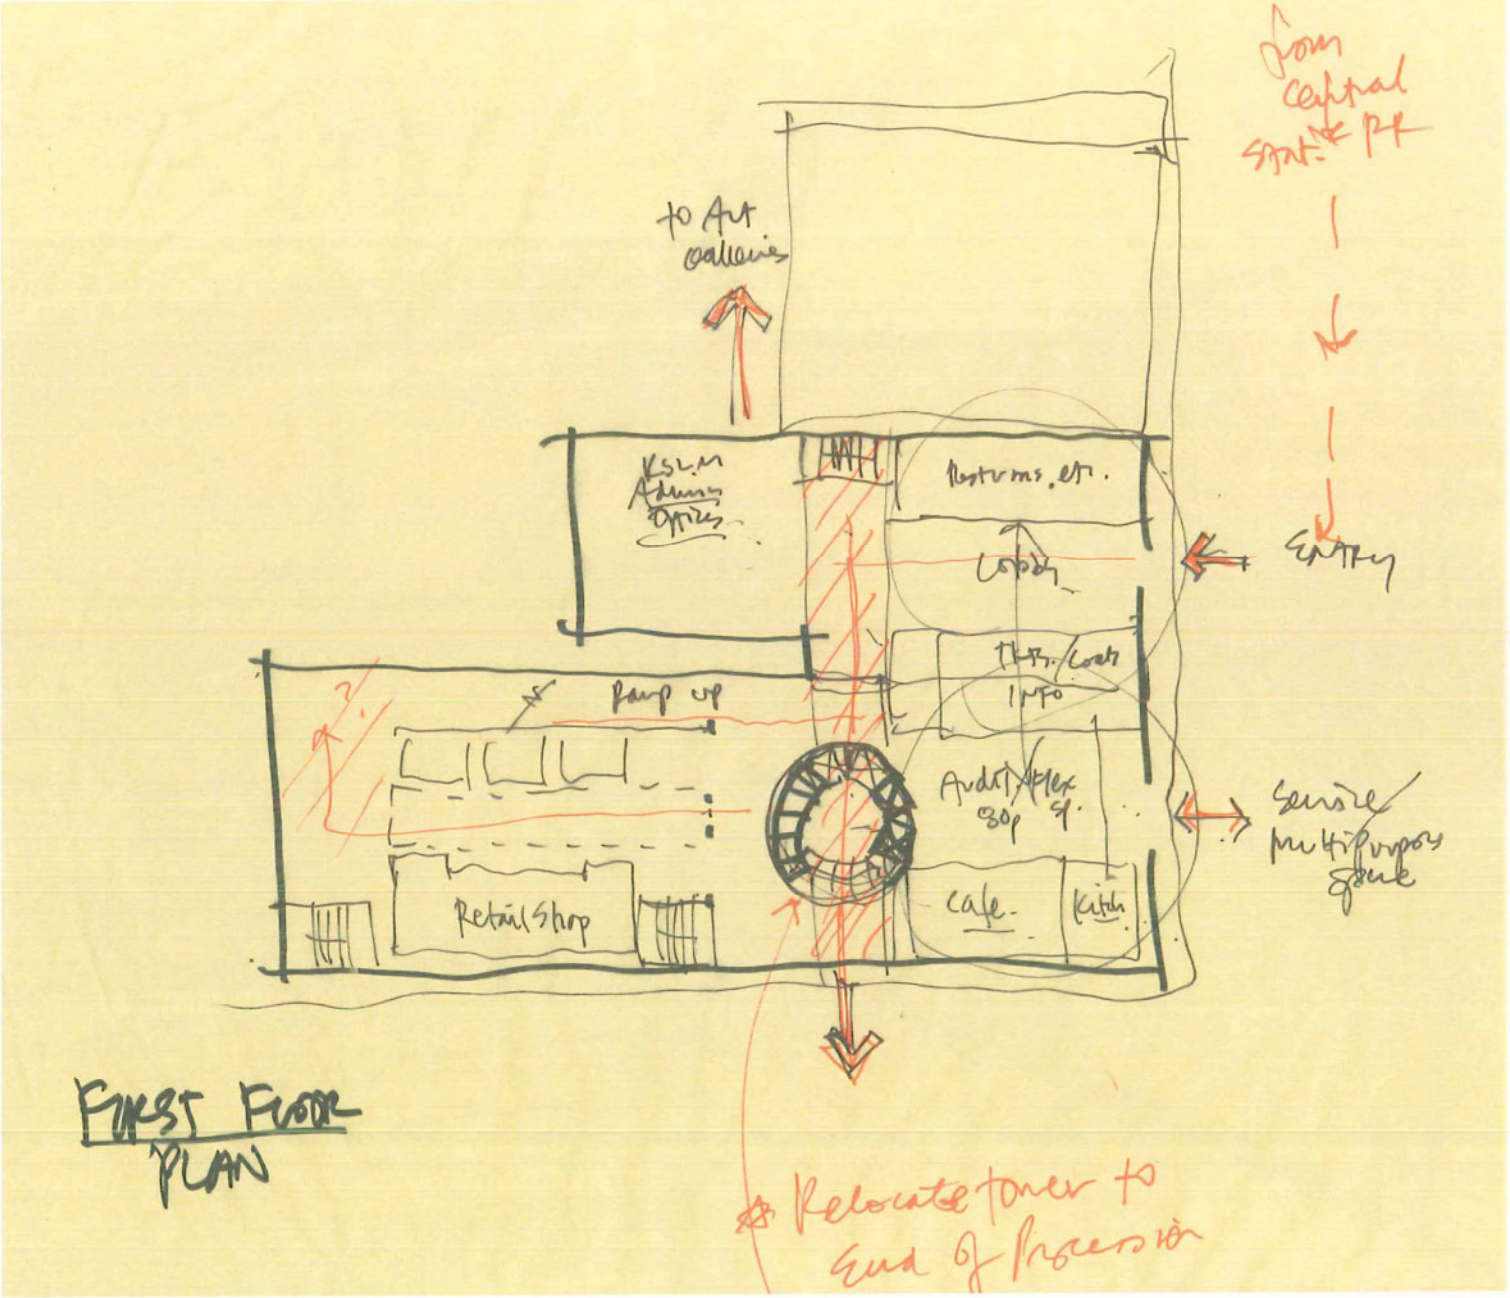 from
Central
Stat. PK
to Art
Galleries
KSLM
Admin
Offices
Restrms. etc.
Lobby
ENTRY
Tkts./Coats
INFO
Ramp up
?
Audit./Flex
80p sp.
Service/
Multipurpose
space
Retail Shop
Cafe.
Kitch
FIRST FLOOR
PLAN
Relocate tower to
End of Procession